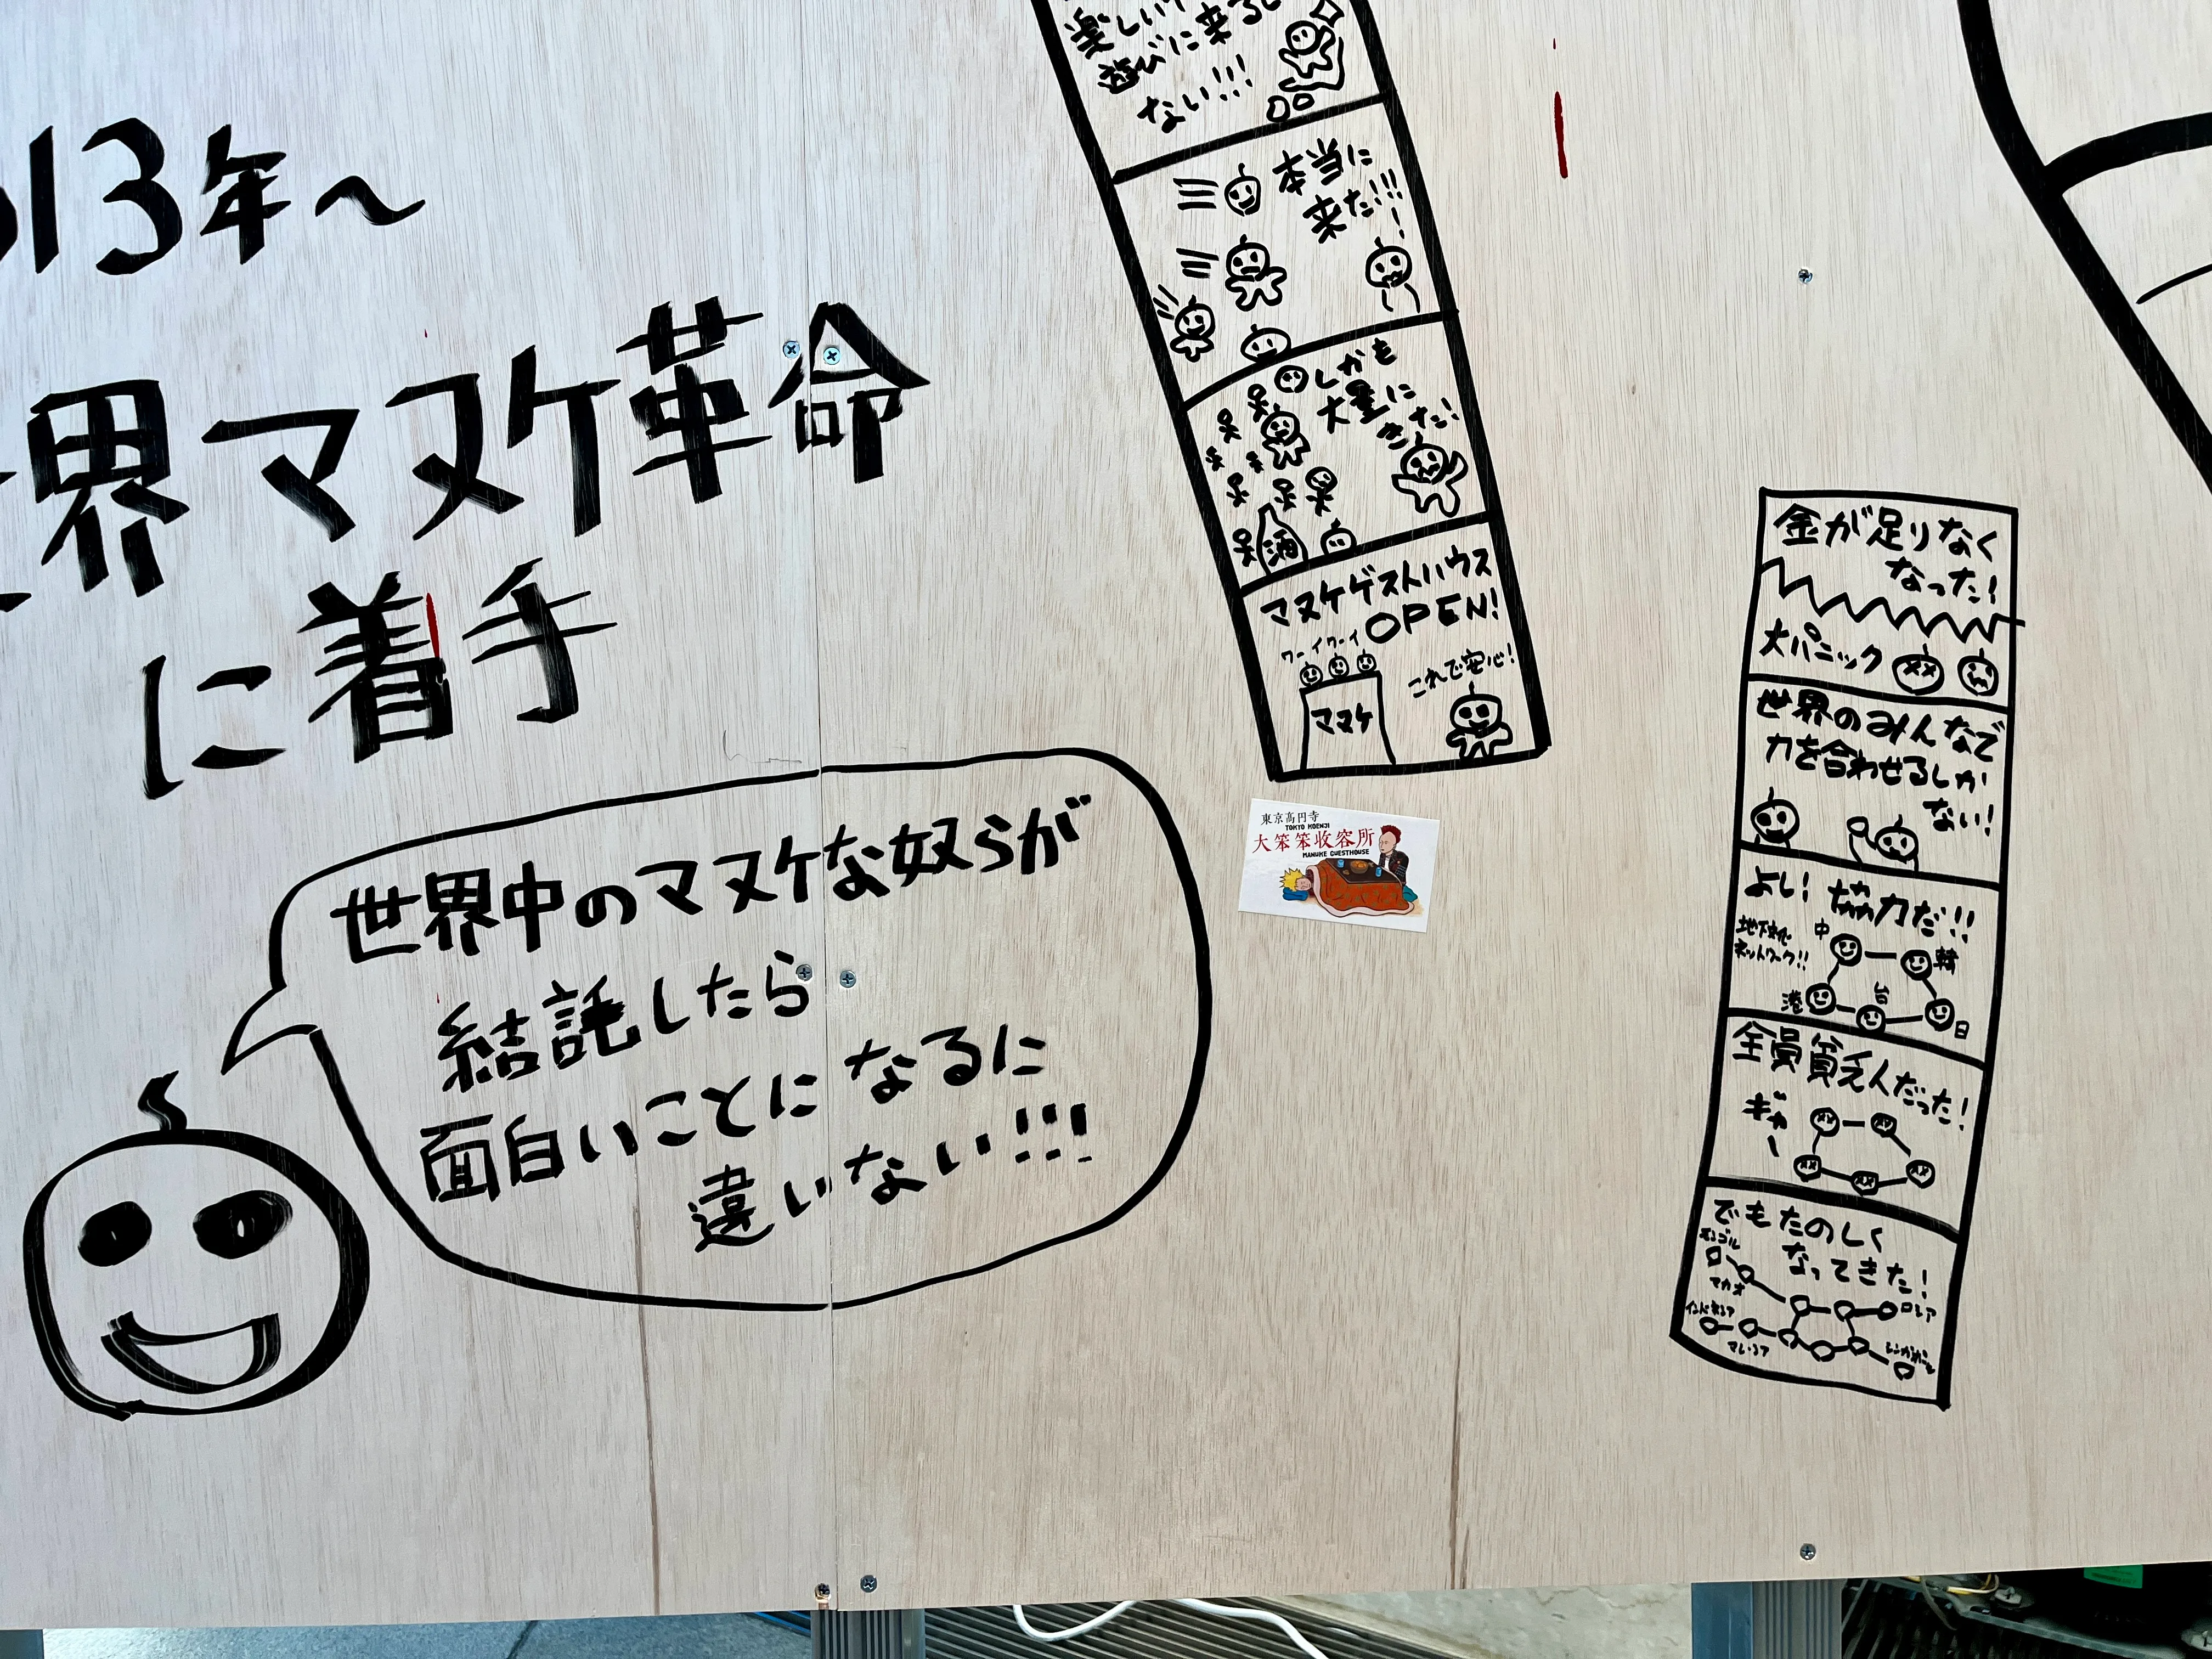 13年～
界マヌケ革命
に着手
世界中のマヌケな奴らが
結託したら
面白いことになるに
違いない!!!
遊びに来る
ない!!!
本当に
来た!!!!
しかも
大量に
きた!
酒
マヌケゲストハウス
OPEN!
ワーイワーイ
これで安心!
マヌケ
東京高円寺
TOKYO KOENJI
大笨笨收容所
MANUKE GUESTHOUSE
金が足りなく
なった!
大パニック
世界のみんなで
力を合わせるしか
ない!
よし! 協力だ!!
地下文化
ネットワーク!!
中
韓
港
台
日
全員貧乏人だった!
ギャー
でもたのしく
なってきた!
モンゴル
マカオ
ロシア
インドネシア
マレーシア